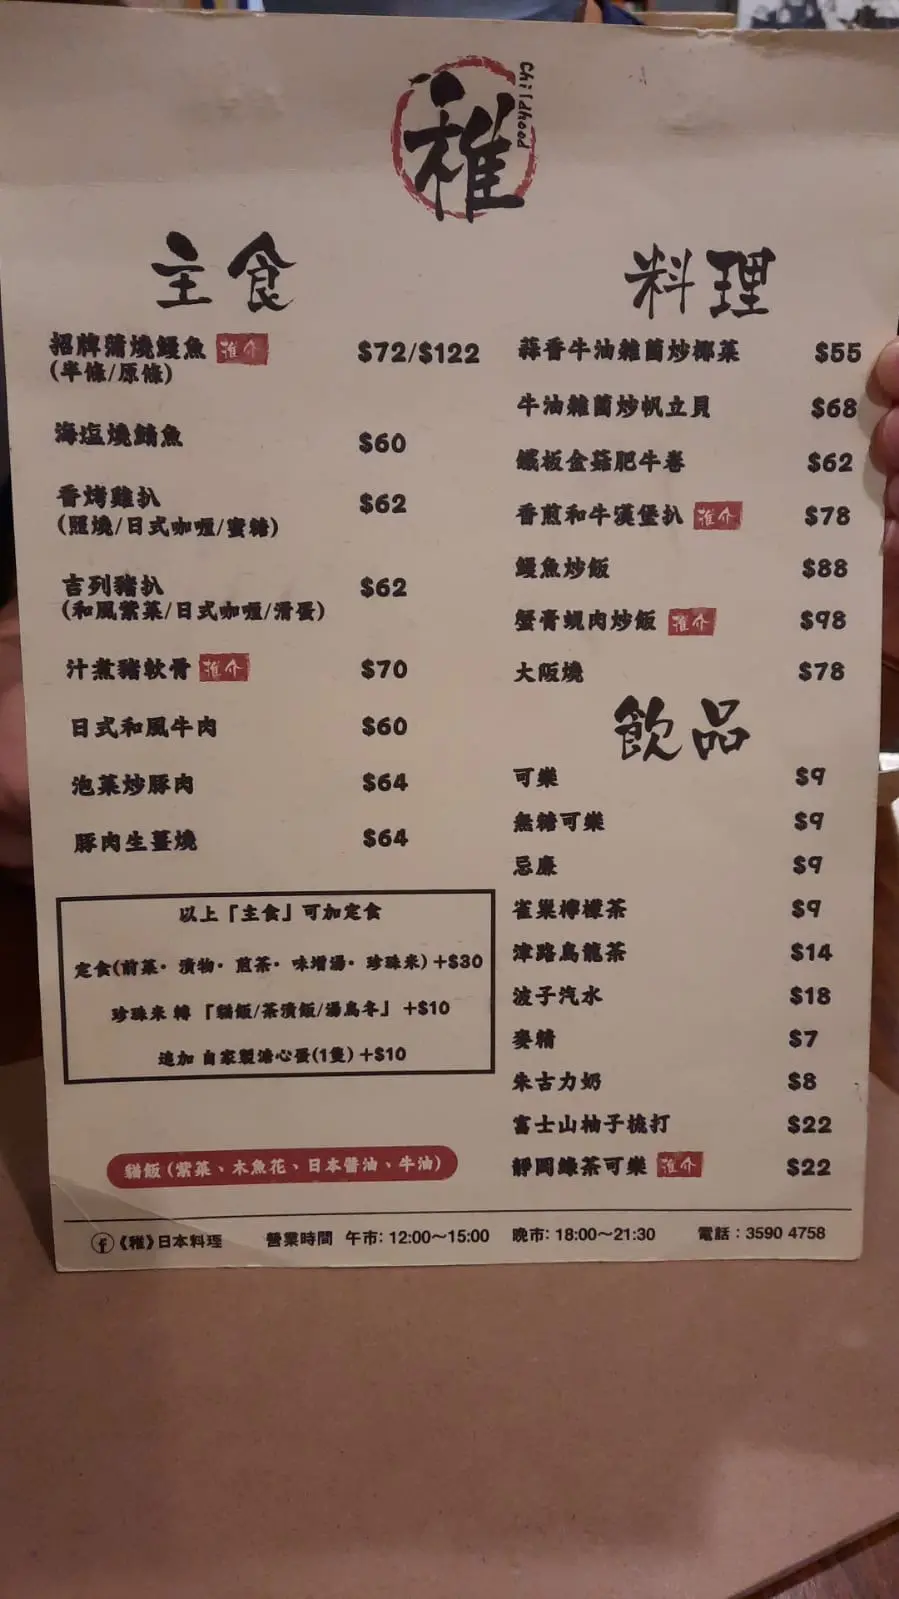 稚
Childhood
主食
招牌蒲燒鰻魚 推介 $72/$122
(半條/原條)
海塩燒鯖魚 $60
香烤雞扒 $62
(照燒/日式咖喱/蜜糖)
吉列豬扒 $62
(和風紫菜/日式咖喱/滑蛋)
汁煮豬軟骨 推介 $70
日式和風牛肉 $60
泡菜炒豚肉 $64
豚肉生薑燒 $64
以上「主食」可加定食
定食(前菜・漬物・煎茶・味增湯・珍珠米) +$30
珍珠米 轉 「貓飯/茶漬飯/湯烏冬」 +$10
追加 自家製溏心蛋(1隻) +$10
貓飯 (紫菜、木魚花、日本醬油、牛油)
料理
蒜香牛油雜菌炒椰菜 $55
牛油雜菌炒帆立貝 $68
鐵板金菇肥牛卷 $62
香煎和牛漢堡扒 推介 $78
鰻魚炒飯 $88
蟹膏蜆肉炒飯 推介 $98
大阪燒 $78
飲品
可樂 $9
無糖可樂 $9
忌廉 $9
雀巢檸檬茶 $9
津路烏龍茶 $14
波子汽水 $18
麥精 $7
朱古力奶 $8
富士山柚子梳打 $22
靜岡綠茶可樂 推介 $22
《稚》日本料理 營業時間 午市: 12:00～15:00 晚市: 18:00～21:30 電話：3590 4758